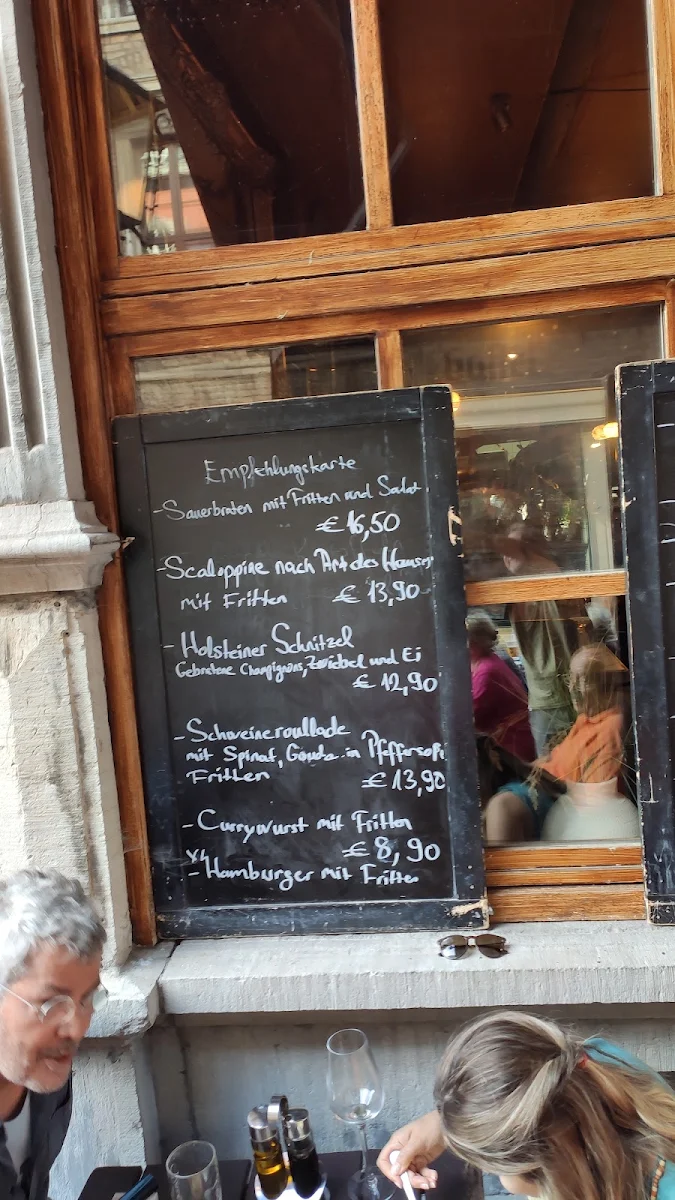 Empfehlungskarte
- Sauerbraten mit Fritten und Salat
€ 16,50
- Scaloppine nach Art des Hauses
mit Fritten € 13,90
- Holsteiner Schnitzel
Gebratene Champignons, Zwiebel und Ei
€ 12,90
- Schweineroullade
mit Spinat, Gouda in Pfeffersoße
Fritten € 13,90
- Currywurst mit Fritten
€ 8,90
- Hamburger mit Fritten